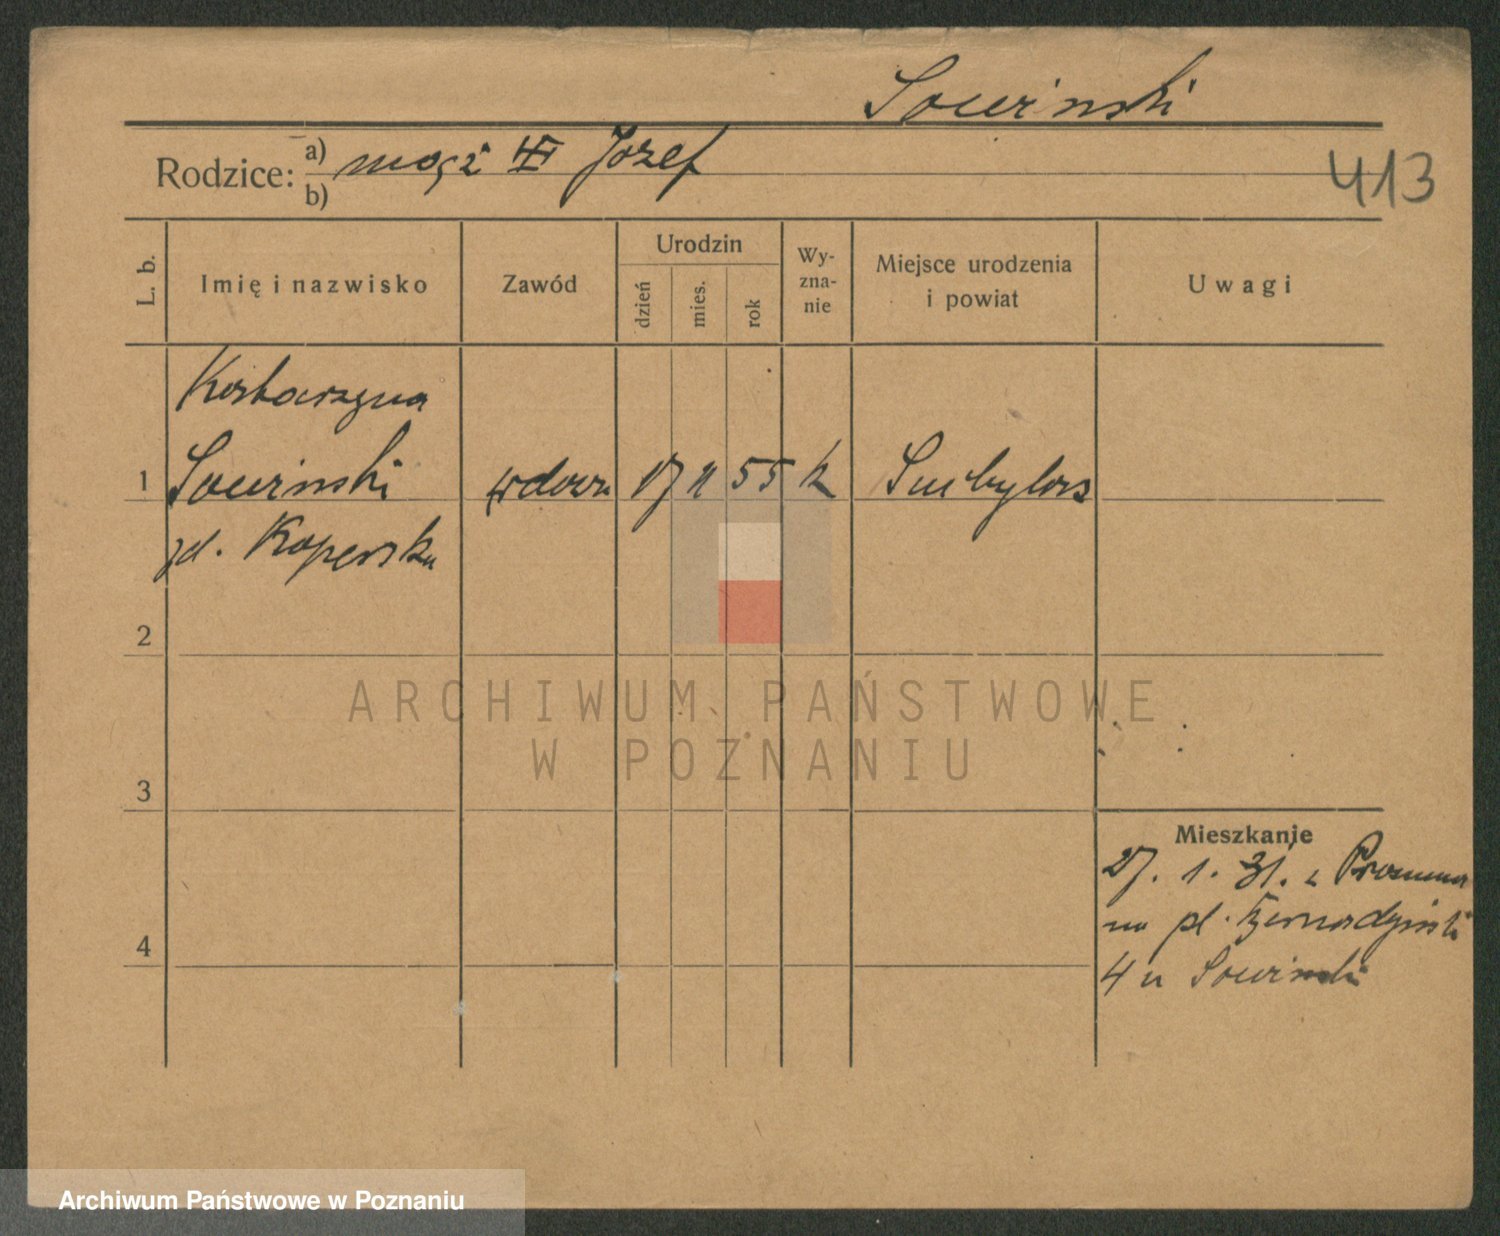 Sowinski
Rodzice: a) mąż Józef
b)
413
L. b.
Imię i nazwisko
Zawód
Urodzin
dzień
mies.
rok
Wy-
zna-
nie
Miejsce urodzenia
i powiat
Uwagi
Katarzyna
1 Sowinski wdowa 17 11 55 k
zd. Koperska
2
3
4
Mieszkanie
27. 1. 31. z
na pl. Bernardyński
4 u Sowinski
ARCHIWUM PAŃSTWOWE
W POZNANIU
Archiwum Państwowe w Poznaniu